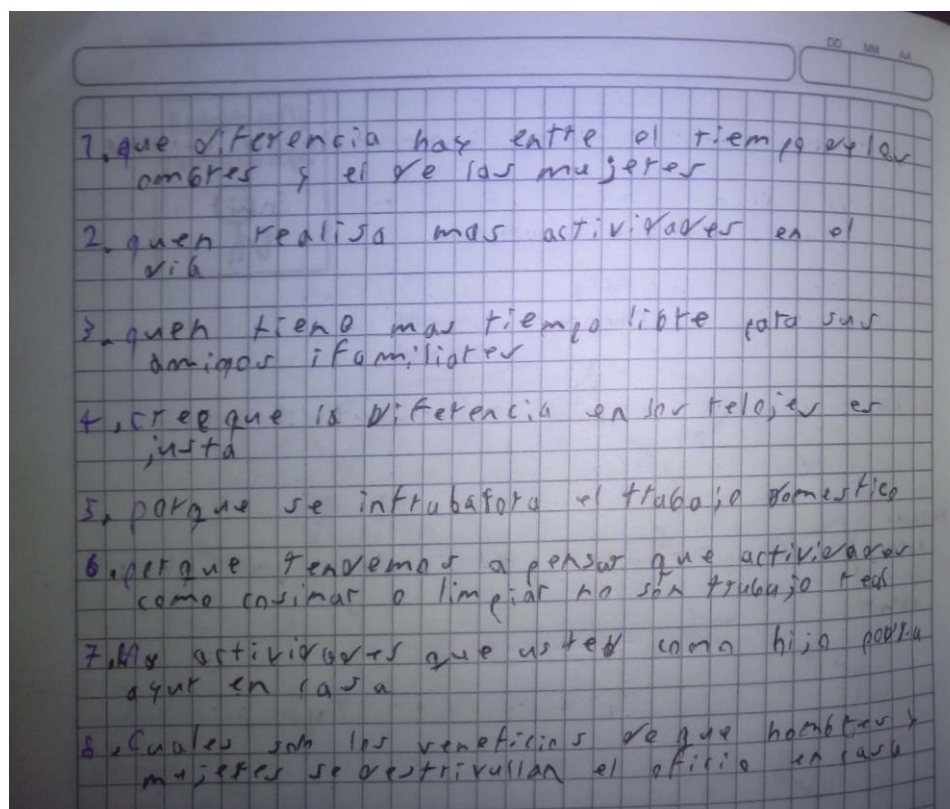 DD MM AA
1. que diferencia hay entre el tiempo de los
ombres y el de las mujeres
2. quen realisa mas actividades en el
dia
3. quen tieno mas tiempo libre para sus
amigos i familiares
4. cree que la diferencia en los relojes es
justa
5. porque se el trabajo domestico
6. porque tendemos a pensar que actividades
como cosinar o limpiar no son trabajo real
7. actividades que usted como hijo
en casa
8. Cuales son los veneficios de que hombres y
mujeres se destrivullan el oficio en casa